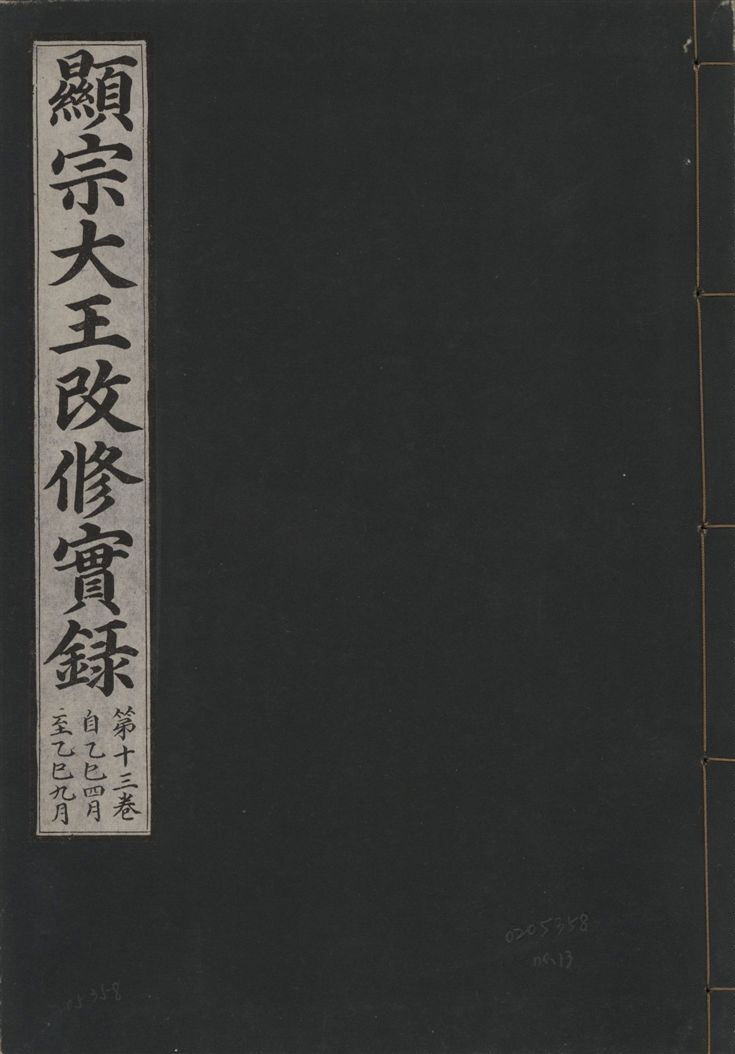 顯宗大王改修實録
第十三卷
自乙巳四月
至乙巳九月
0205358
no.13
05358